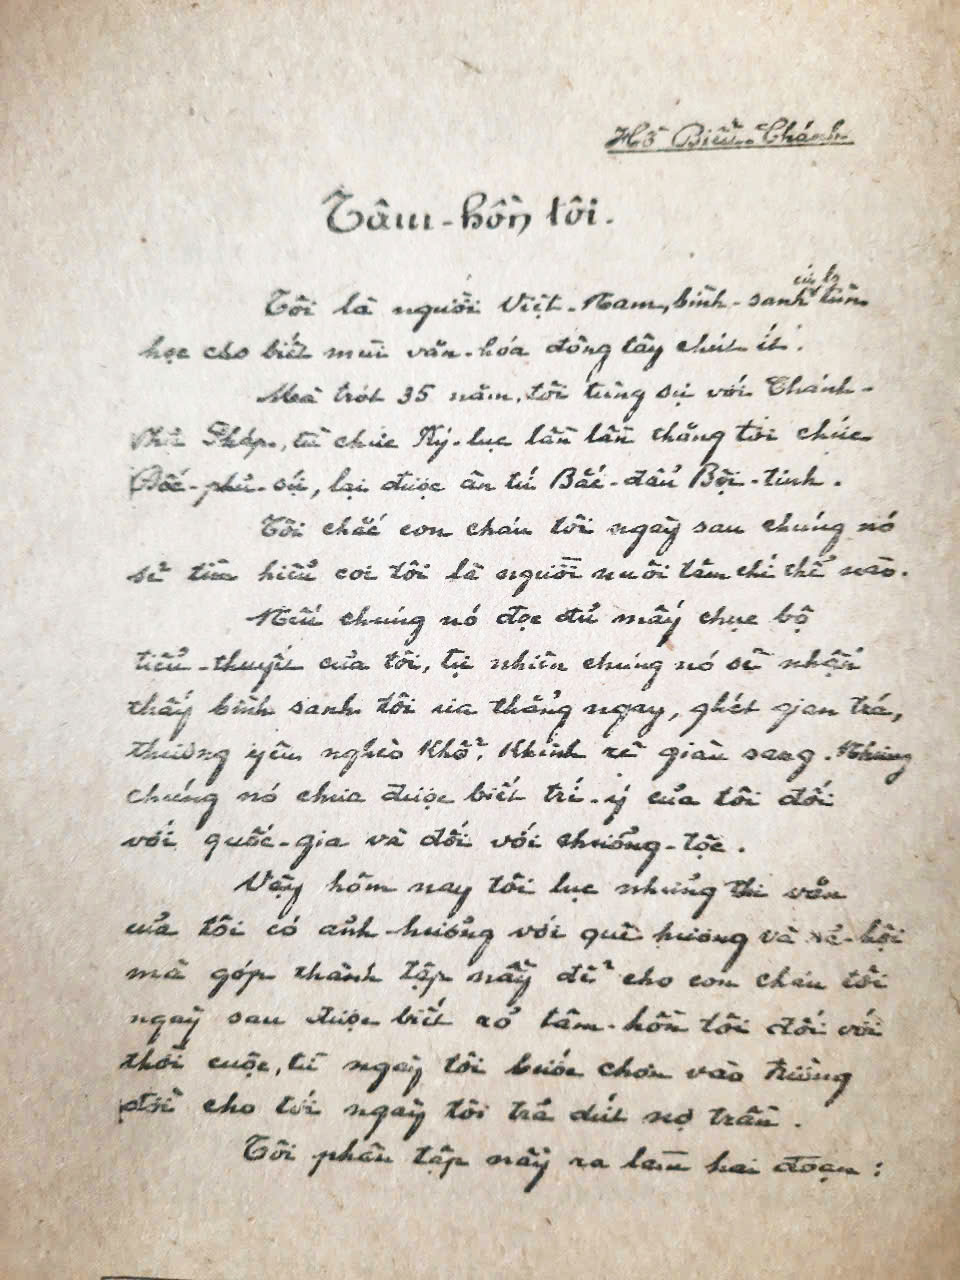 Hồ Biểu Chánh
Tâm-hồn tôi.
Tôi là người Việt-Nam, bình-sanh có tìm
học cho biết mùi văn-hóa đông tây chút ít.
Mà trót 35 năm, tôi tùng sự với Chánh-
Phủ Pháp, từ chức Ký-lục lần lần thăng tới chức
Đốc-phủ-sứ, lại được ân tứ Bắc-đẩu Bội-tinh.
Tôi chắc con cháu tôi ngày sau chúng nó
sẽ tìm hiểu coi tôi là người nuôi tâm chí thế nào.
Nếu chúng nó đọc đủ mấy chục bộ
tiểu-thuyết của tôi, tự nhiên chúng nó sẽ nhận
thấy bình sanh tôi ưa thẳng ngay, ghét gian trá,
thương yêu nghèo khổ, khinh rẻ giàu sang. Nhưng
chúng nó chưa được biết trí-ý của tôi đối
với quốc-gia và đối với chưởng-tộc.
Vậy hôm nay tôi lục nhưng thi văn
của tôi có ảnh-hưởng với quê hương và xã-hội
mà góp thành tập nầy để cho con cháu tôi
ngày sau được biết rỏ tâm-hồn tôi đối với
thời cuộc, từ ngày tôi bước chơn vào đường
đời cho tới ngày tôi trả dứt nợ trần.
Tôi phân tập nầy ra làm hai đoạn: